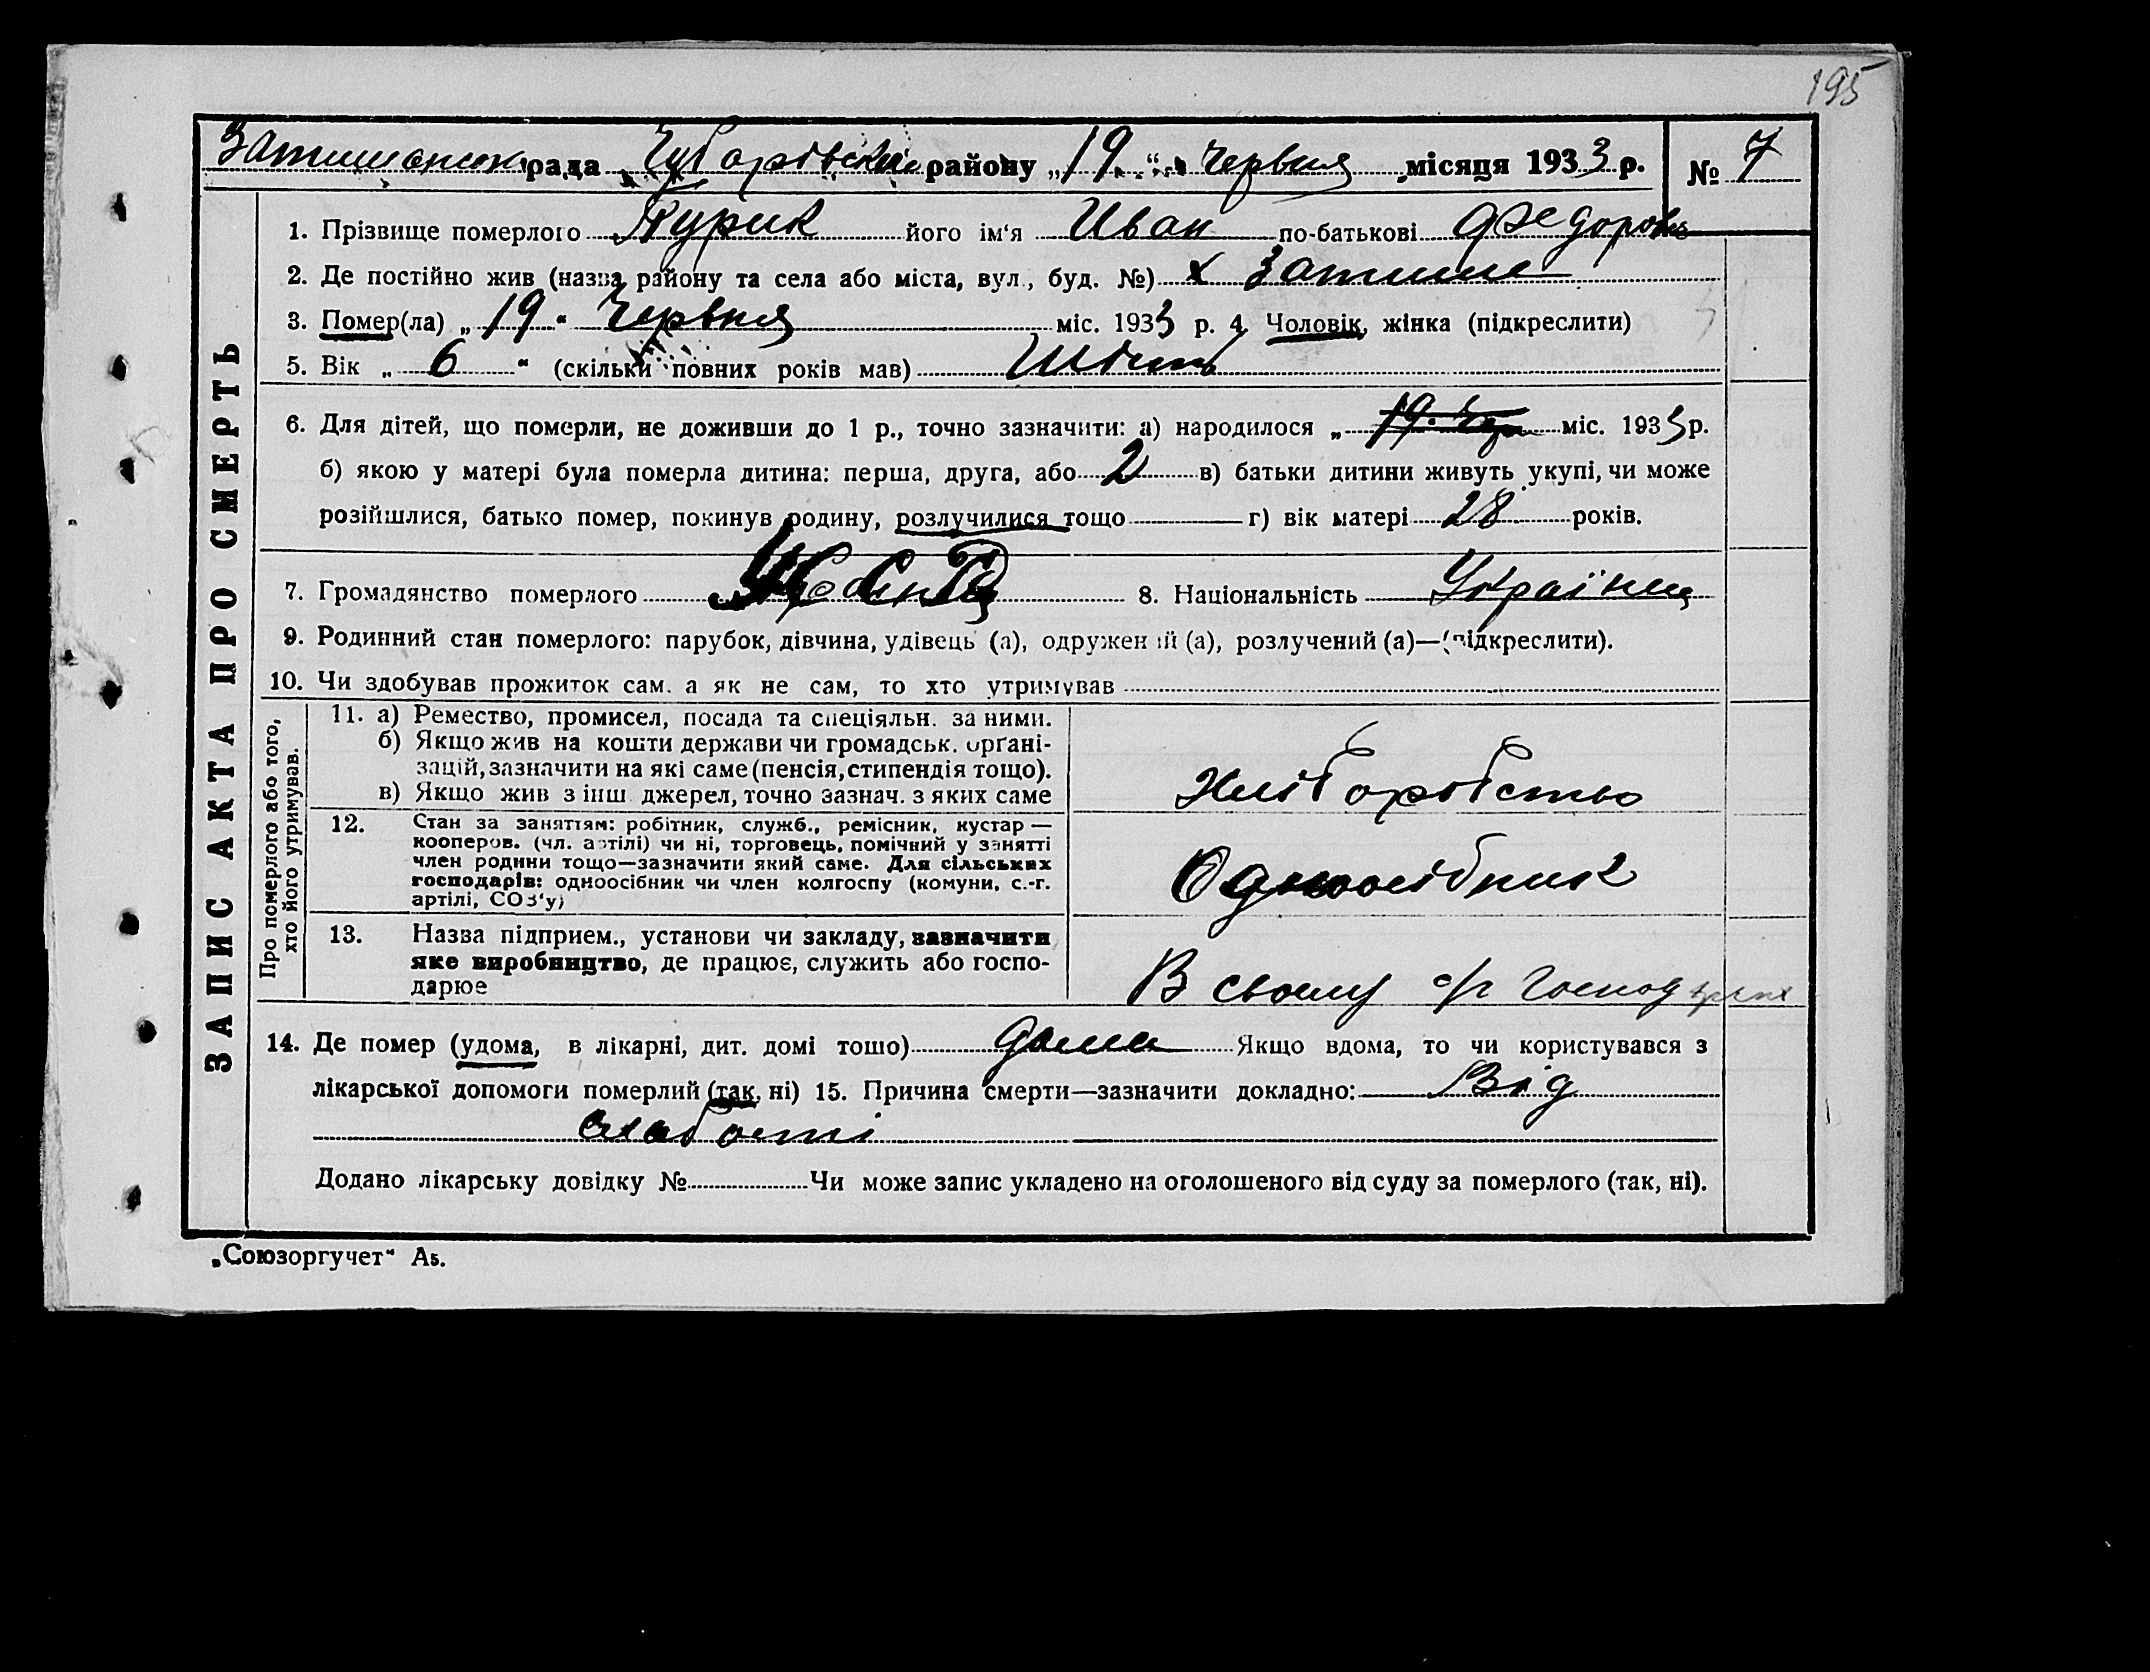 195
Затишанська рада Чубарівський району „19“ Червня місяця 1933 р. № 7
1. Прізвище померлого Турик його ім‘я Иван по-батькові Федоров
2. Де постійно жив (назва району та села або міста, вул., буд. №) х Затише
3. Помер(ла) „19“ Червня міс. 1933 р. 4. Чоловік, жінка (підкреслити)
5. Вік „6“ (скільки повних років мав) Шість
6. Для дітей, що померли, не доживши до 1 р., точно зазначити: а) народилося „ міс. 1933 р.
б) якою у матері була померла дитина: перша, друга, або 2 в) батьки дитини живуть укупі, чи може
розійшлися, батько помер, покинув родину, розлучилися тощо г) вік матері 28 років.
7. Громадянство померлого 8. Національність Українец
9. Родинний стан померлого: парубок, дівчина, удівець (а), одружений (а), розлучений (а)—(підкреслити).
10. Чи здобував прожиток сам, а як не сам, то хто утримував
ЗАПИС АКТА ПРО СМЕРТЬ
Про померлого або того,
хто його утримував.
11. а) Ремество, промисел, посада та спеціяльн. за ними.
б) Якщо жив на кошти держави чи громадськ. орґані-
зацій, зазначити на які саме (пенсія, стипендія тощо).
в) Якщо жив з інш. джерел, точно зазнач. з яких саме
Хліборобство
12. Стан за заняттям: робітник, служб., ремісник, кустар —
кооперов. (чл. артілі) чи ні, торговець, помічний у занятті
член родини тощо—зазначити який саме. Для сільських
господарів: одноосібник чи член колгоспу (комуни, с.-г.
артілі, СОЗ‘у)
Одноосібник
13. Назва підприєм., установи чи закладу, зазначити
яке виробництво, де працює, служить або госпо-
дарює
В своему с/г господарстві
14. Де помер (удома, в лікарні, дит. домі тощо) дома Якщо вдома, то чи користувався з
лікарської допомоги померлий (так, ні) 15. Причина смерти—зазначити докладно: Від
слабості
Додано лікарську довідку № Чи може запис укладено на оголошеного від суду за померлого (так, ні).
„Союзоргучет“ А5.